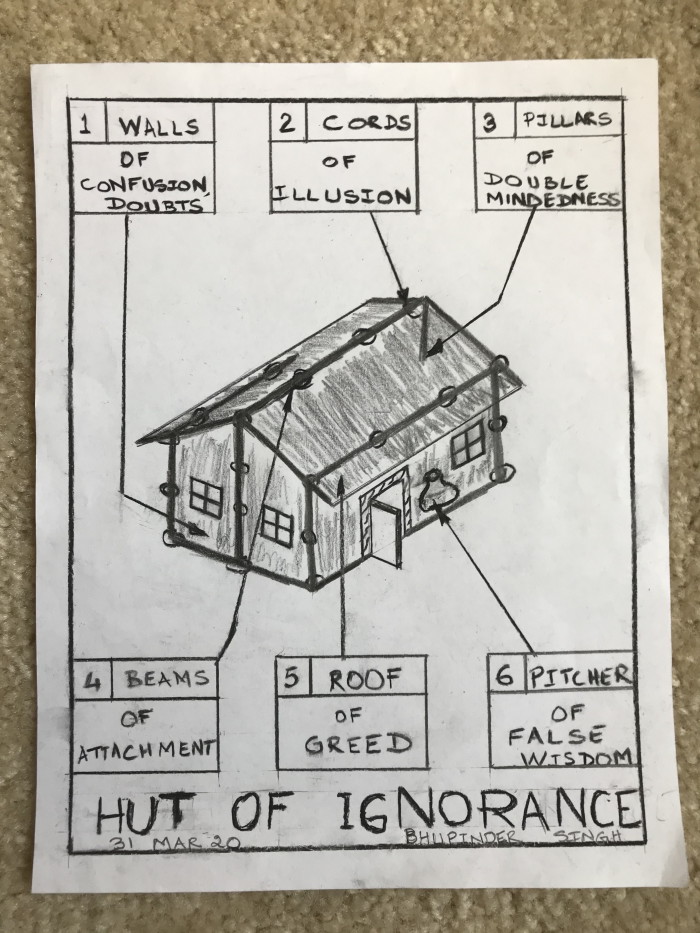 1 WALLS
OF
CONFUSION,
DOUBTS
2 CORDS
OF
ILLUSION
3 PILLARS
OF
DOUBLE
MINDEDNESS
4 BEAMS
OF
ATTACHMENT
5 ROOF
OF
GREED
6 PITCHER
OF
FALSE
WISDOM
HUT OF IGNORANCE
31 MAR 20 BHUPINDER SINGH